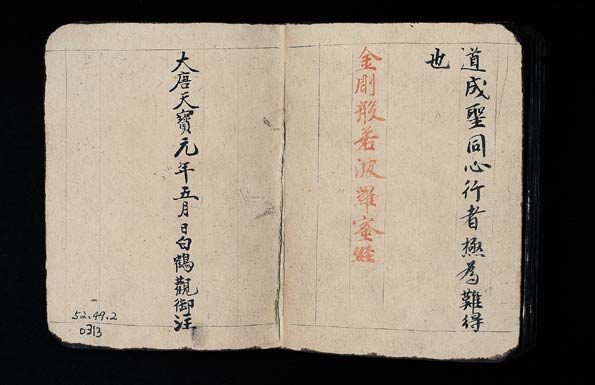 道成聖同心行者極為難得
也
金剛般若波羅蜜經
大唐天寶元年五月日白鶴觀御注
52.49.2
0313